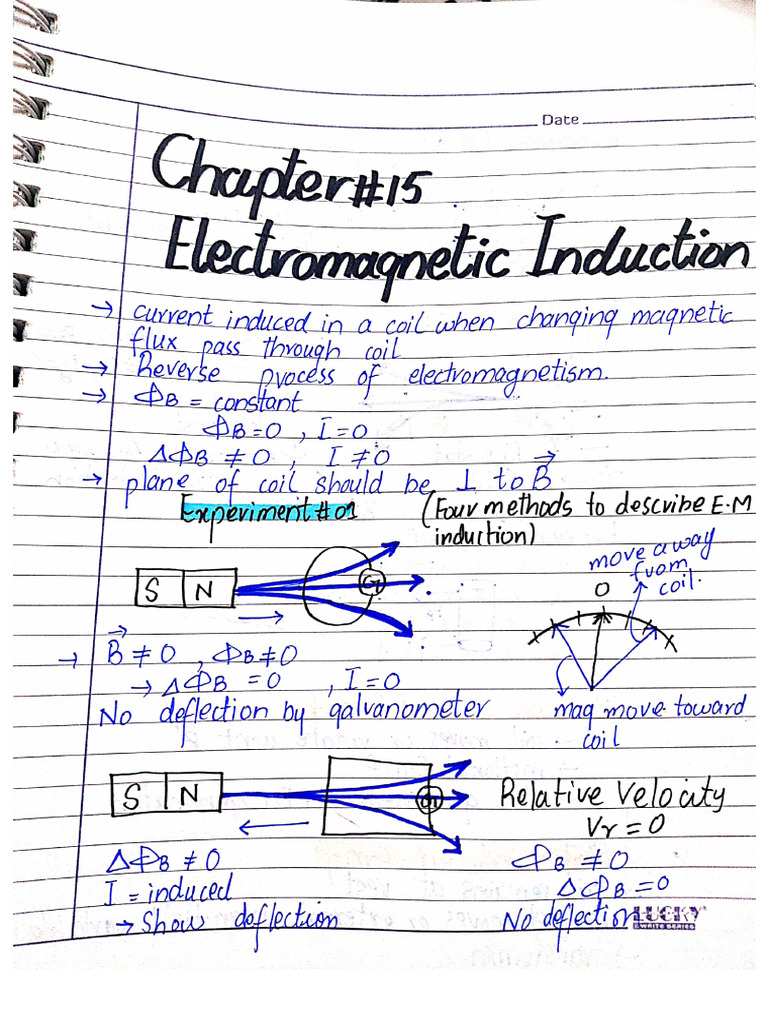 Date
Chapter#15
Electromagnetic Induction
→ current induced in a coil when changing magnetic
flux pass through coil
→ Reverse process of electromagnetism.
→ ΦB = constant
ΦB = 0 , I = 0
ΔΦB ≠ 0 , I ≠ 0
→ plane of coil should be ⊥ to B⃗
Experiment #01 (Four methods to describe E.M
induction)
S N G
move away
from
coil.
O
→ B⃗ ≠ 0 , ΦB ≠ 0
→ ΔΦB = 0 , I = 0
No deflection by galvanometer
mag move toward
coil
S N G
Relative Velocity
Vr = 0
ΔΦB ≠ 0
I = induced
→ Show deflection
ΦB ≠ 0
ΔΦB = 0
No deflection
LUCKY